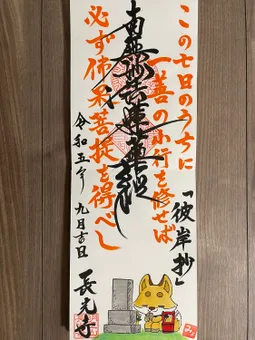 この七日のうちに
一善の小行を修せば
「彼岸抄」
南無妙法蓮華経
必ず佛果菩提を得べし
令和五年 九月吉日
長光寺